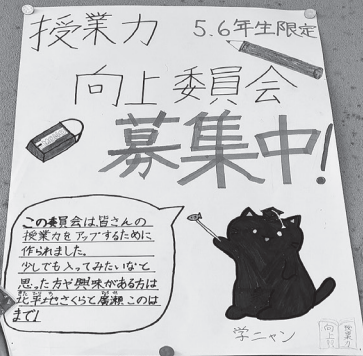 授業力
5.6年生限定
向上委員会
募集中!
この委員会は皆さんの
授業力をアップするために
作られました。
少しでも入ってみたいなと
思った方や興味がある方は
さくらと廣瀬このは
まで!
学ニャン
授業力
向上